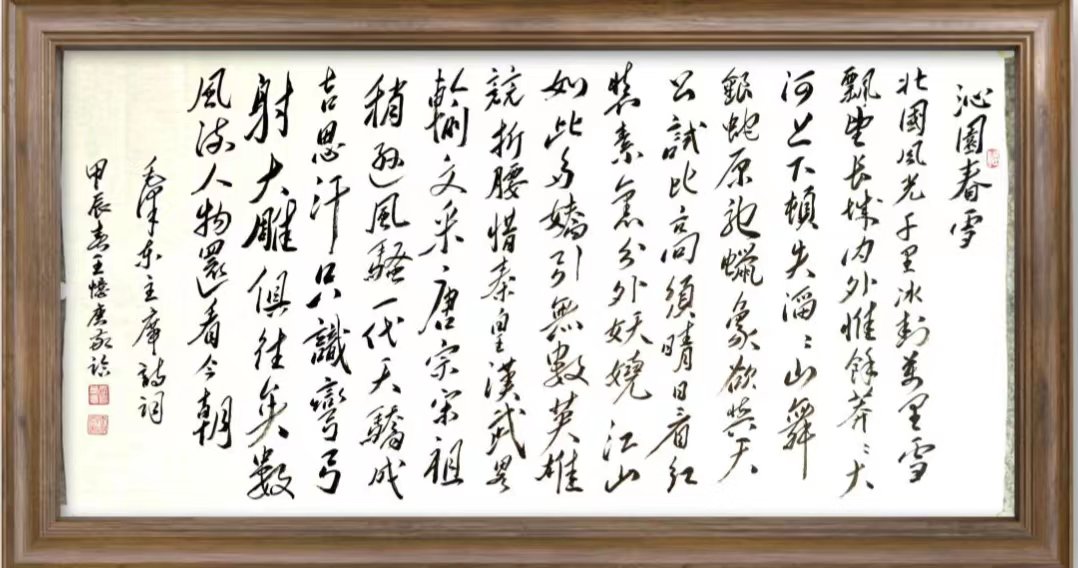 沁園春雪
北國風光千里冰封萬里雪
飄望長城內外惟餘莽〻大
河上下頓失滔〻山舞
銀蛇原馳蠟象欲與天
公試比高須晴日看紅
裝素裹分外妖嬈江山
如此多嬌引無數英雄
競折腰惜秦皇漢武畧
輸文采唐宗宋祖
稍遜風騷一代天驕成
吉思汗只識彎弓
射大雕俱往矣數
風流人物還看今朝
毛澤東主席詩詞
甲辰春王憶